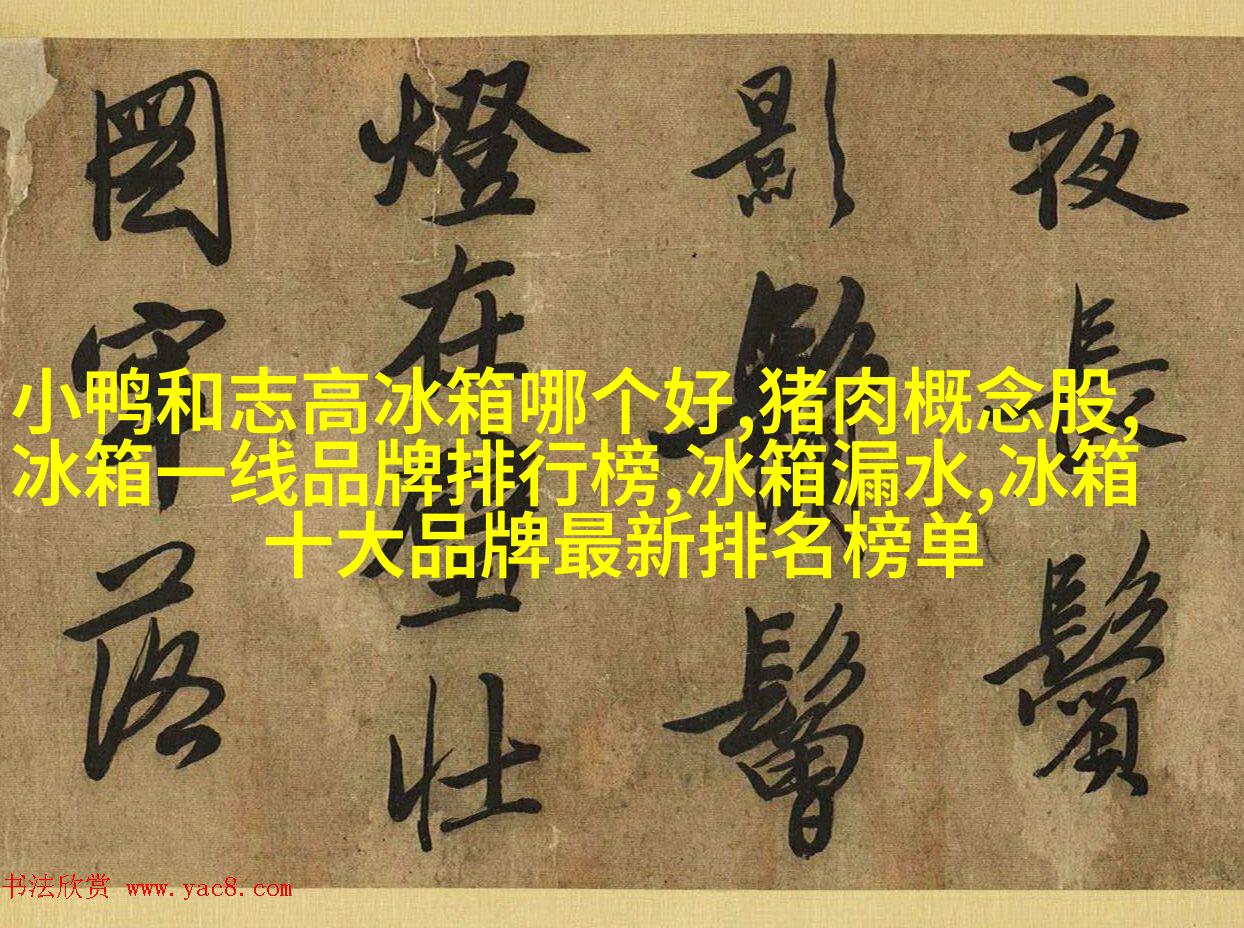 夜長鬢
影鬅鬙
燈在壁壮
圖牢落
小鸭和志高冰箱哪个好,猪肉概念股,
冰箱一线品牌排行榜,冰箱漏水,冰箱
十大品牌最新排名榜单
书法欣赏 www.yac8.com